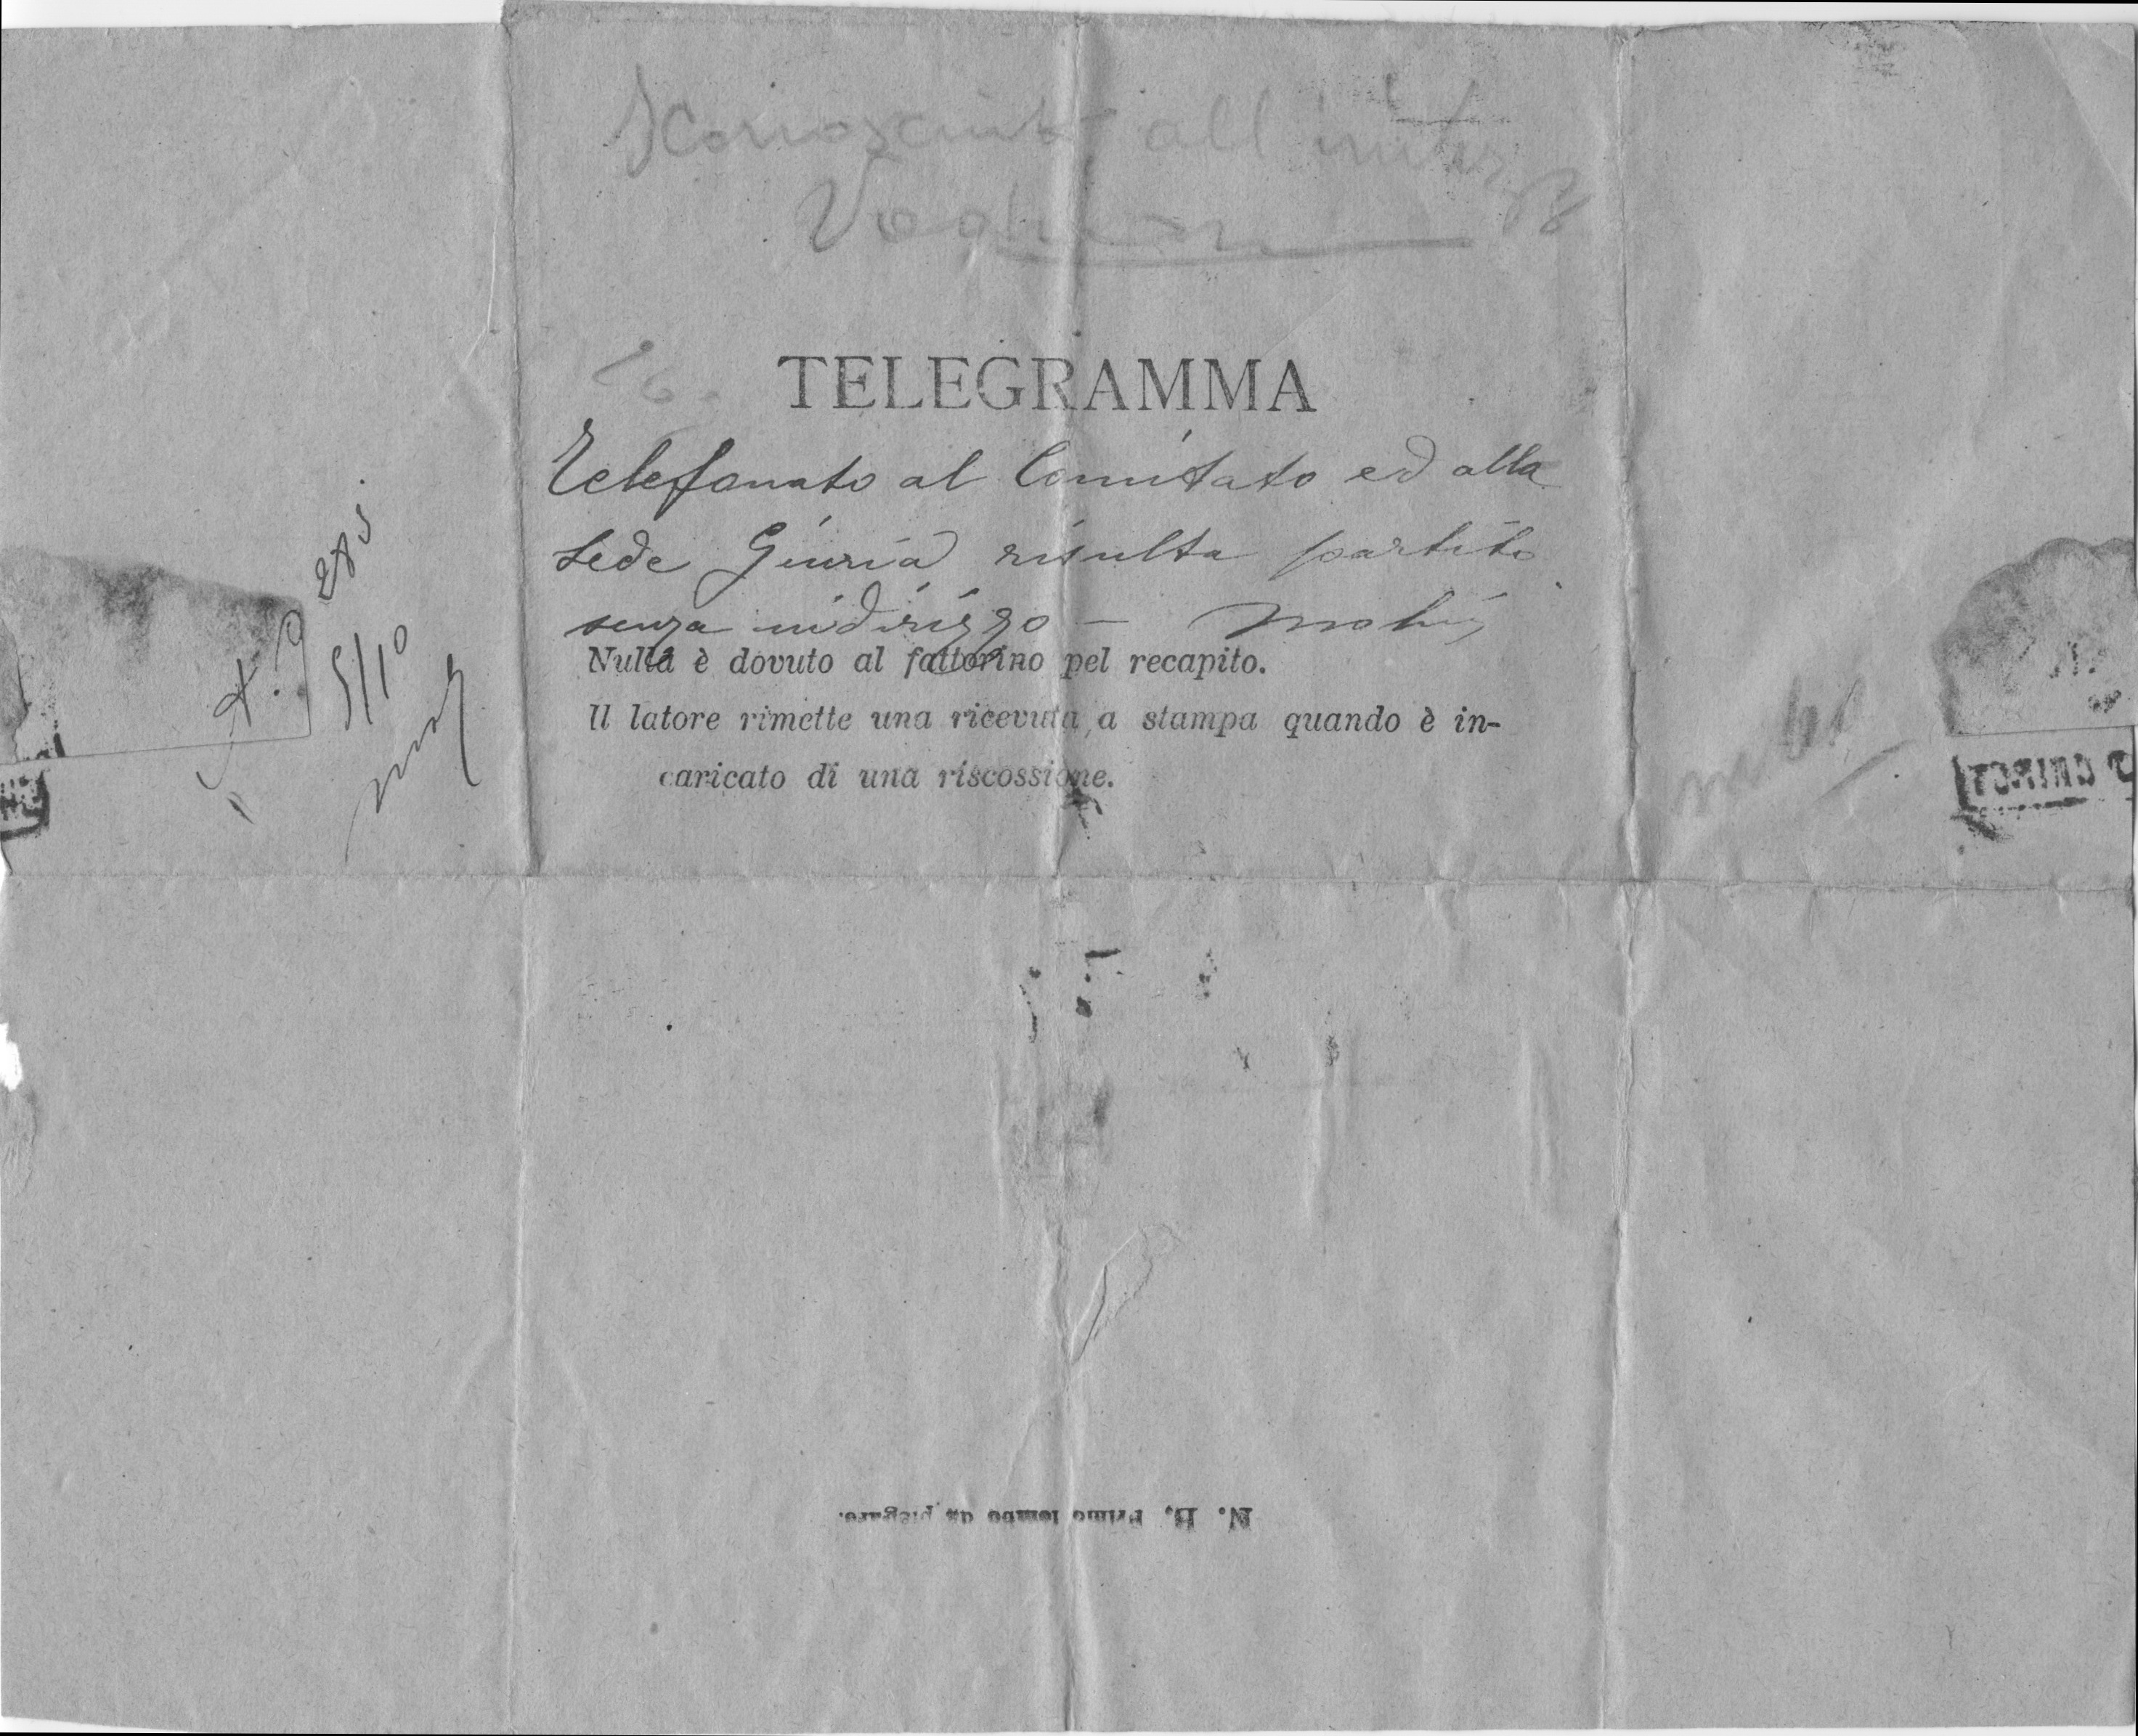 Sconosciuto all'indirizzo
TELEGRAMMA
Telefonato al Comitato ed alla
sede Giuria risulta partito
senza indirizzo –
Nulla è dovuto al fattorino pel recapito.
Il latore rimette una ricevuta a stampa quando è in-
caricato di una riscossione.
285
5/10
TORINO
N. B. Primo lembo da piegare.